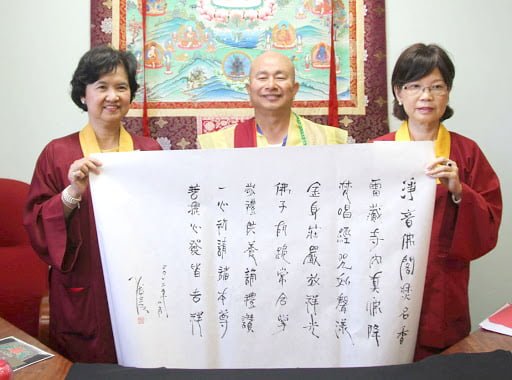 淨音佛閣焚名香
雷藏寺內真佛降
梵唱經咒妙聲漾
金身莊嚴放祥光
佛子前跪常合掌
敬禮供養誦禮讚
一心祈請諸本尊
心發皆吉祥